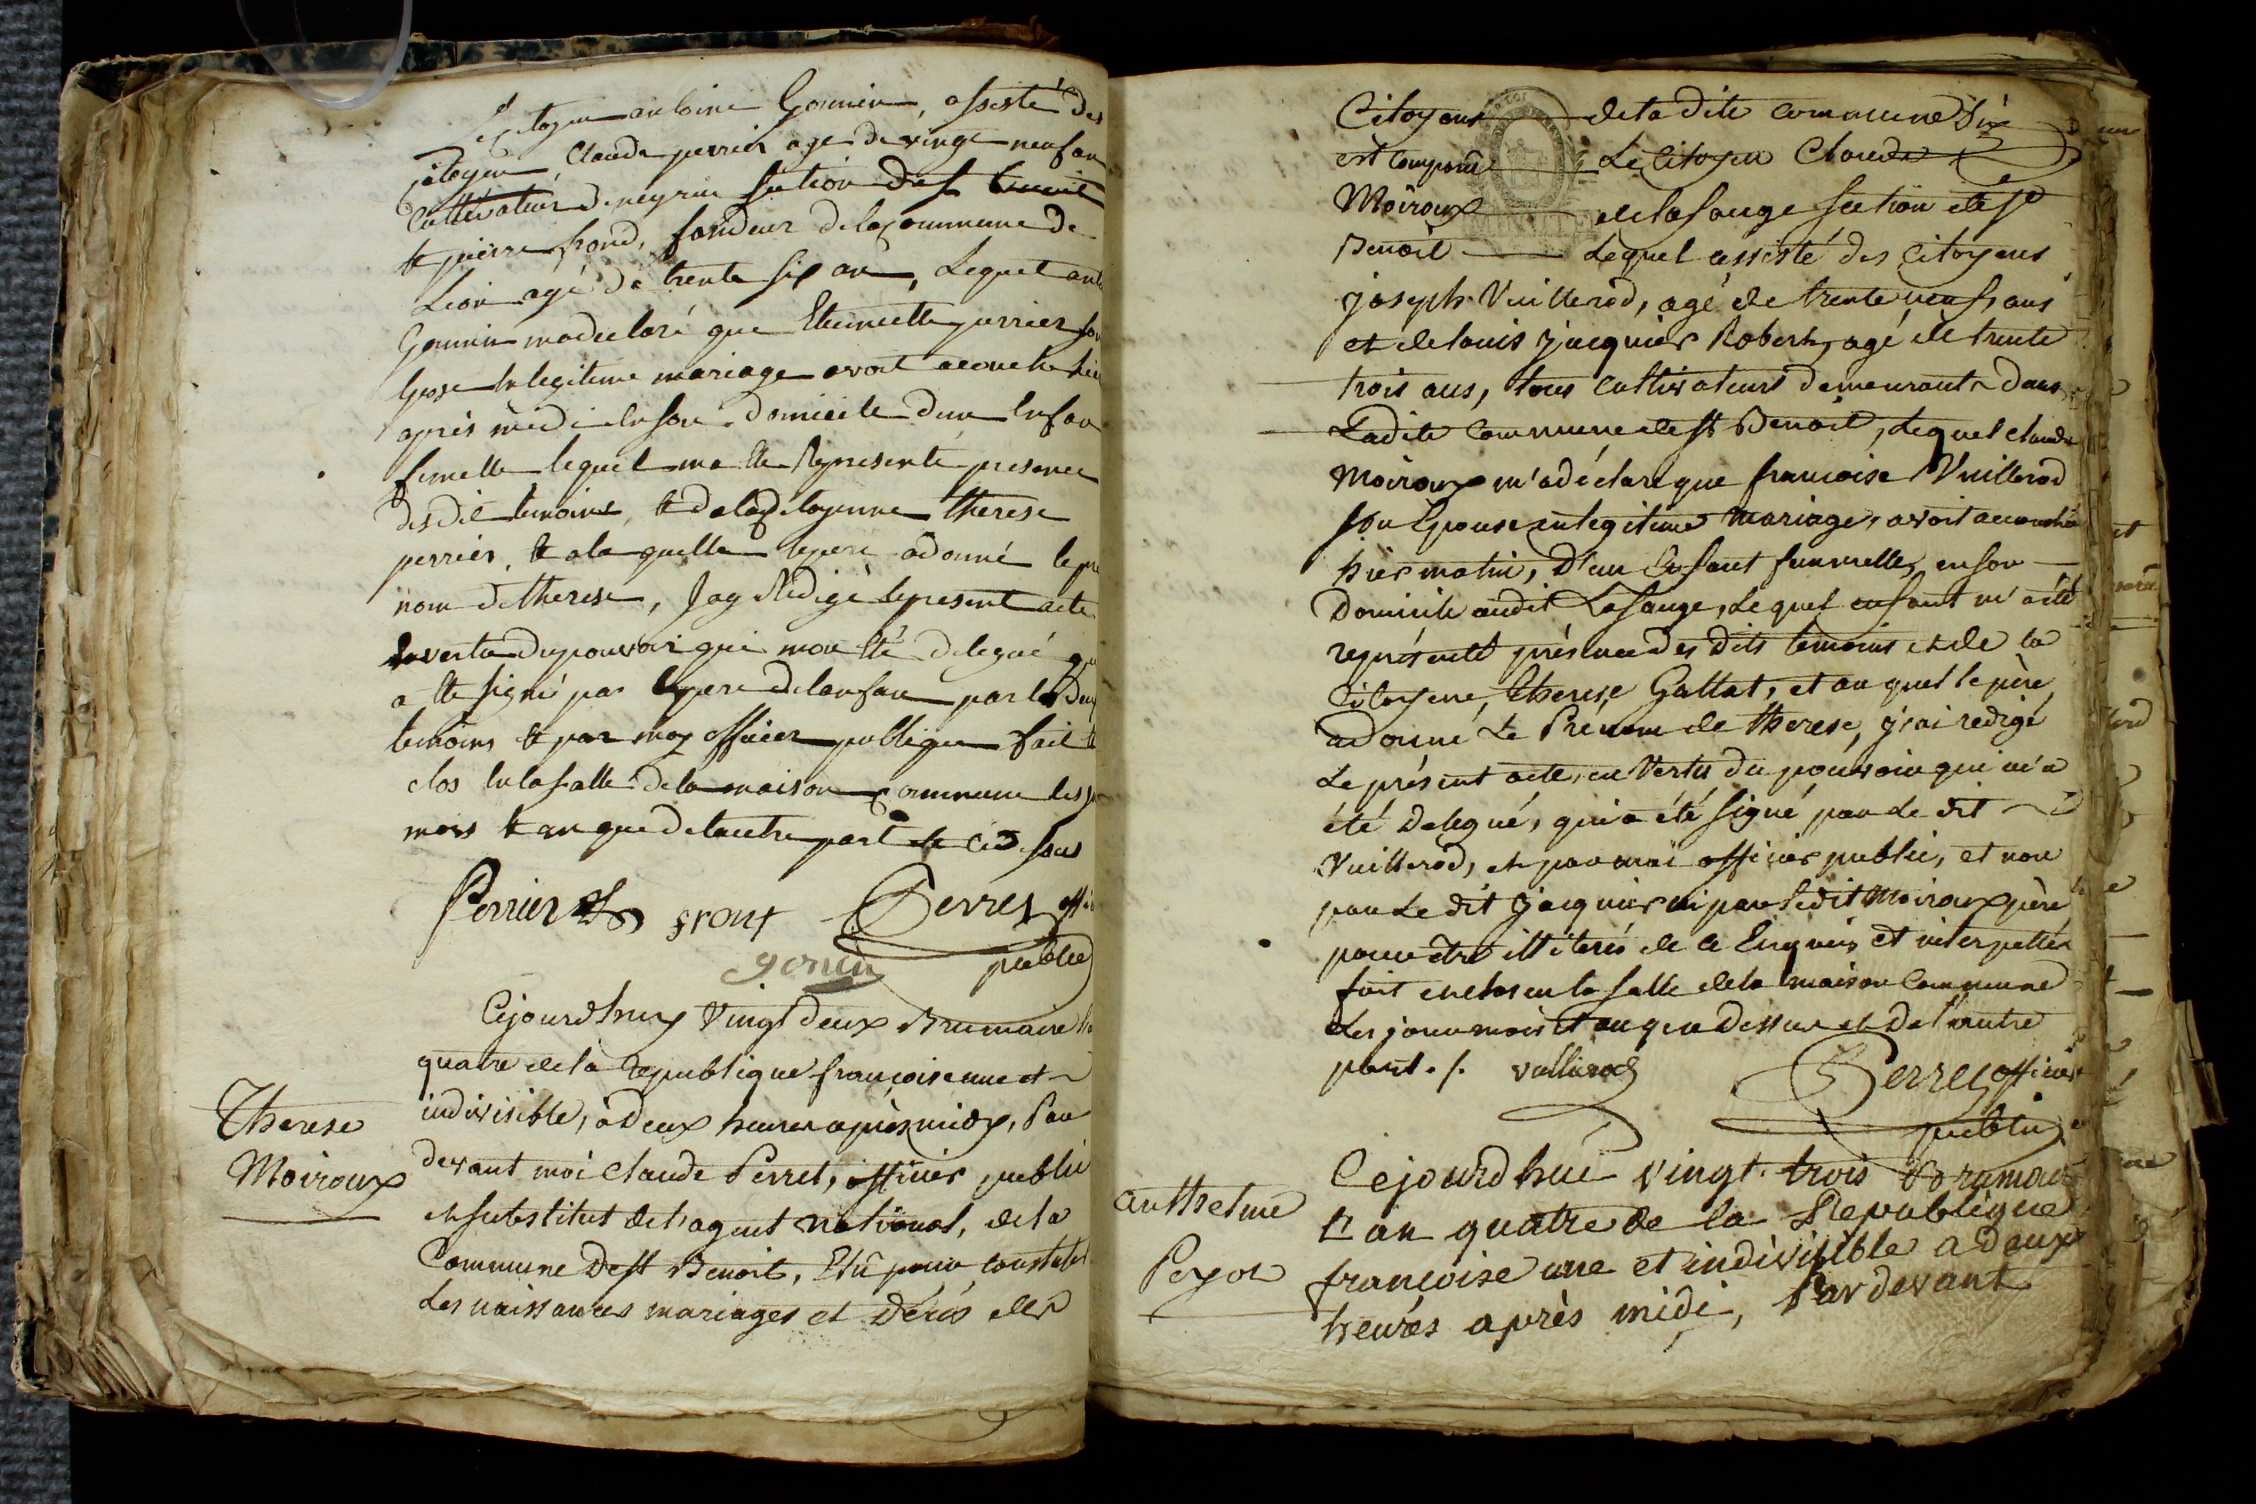 Le Citoyen antoine Gonnin, assisté des
Citoyen Claude perrier agé de vingt neuf an
Cultivateur de neyrin section de st benoit
et pierre frond, fondeur de la Commune de
Lion agé de trente six an, Lequel ant
Gonnin ma declaré que Etiennette perrier son
Epose en legitime mariage avoit acouché hier
après midi en son domicile d'un Enfan
femelle lequel ma ete Représenté presence
desdit temoins, et de la Citoyenne therese
perrier, et a la quelle le pere a donné le pre
nom de therese, Jay Rédigé le present acte
en vertu du pouvoir qui mon été délegué qui
a ete signé par le pere de lenfan par les deux
temoins et par moy officier publique fait et
clos en la salle de la maison commune les jour
mois et an que de lautre part et ci dessus
Perrier front Perret offi
gonin public
Cejourd'huy Vingt deux Brumaire l'an
quatre de la République françoise une et
indivisible, à deux heures après midy, Par
devant moi Claude Perret, officier public
et substitut de l'agent national, de la
Commune de st Benoit, Elû pour constater
Les naissances mariages et décés des
Therese
Moiroux
Citoyens de la dite commune dix
est Comparu Le Citoyen Claude
Moiroux de la sauge section de st
Benoit Lequel assisté des Citoyens
joseph Vuillerod, agé de trente neuf ans
et de louis jacquier Robert, agé de trente
trois ans, tous cultivateurs demeurants dans
Ladite Commune de st Benoit, Lequel claude
Moiroux m'a déclaré que francoise Vuillerod
son Epouse en legitime mariage, avoit accouchée
hier matin, d'un Enfant fummelle, en son
Domicile audit Lasauge, Lequel enfant m'a été
représenté présence des dits temoins et de la
Citoyene, therese Gallat, et auquel le père
a donné Le Prenom de therese, j'ai redigé
Le présent acte, en Vertu du pouvoir qui m'a
été Delegué, qui a été signé par Le dit
Vuillerod, et par moi officier public, et non
par Le dit jacquier ni par Ledit Moiroux père
pour etre illiterés de ce Enquis et interpellés
fait et clos en la salle de la maison Commune
Les jour mois et an que Dessus et De l'autre
part ./. vullierod Perret officier
public
Cejourd hui vingt trois brumaire
L'an quatre de la République
françoise une et indivisible a deux
heures après midi, Pardevant
anthelme
Peysot